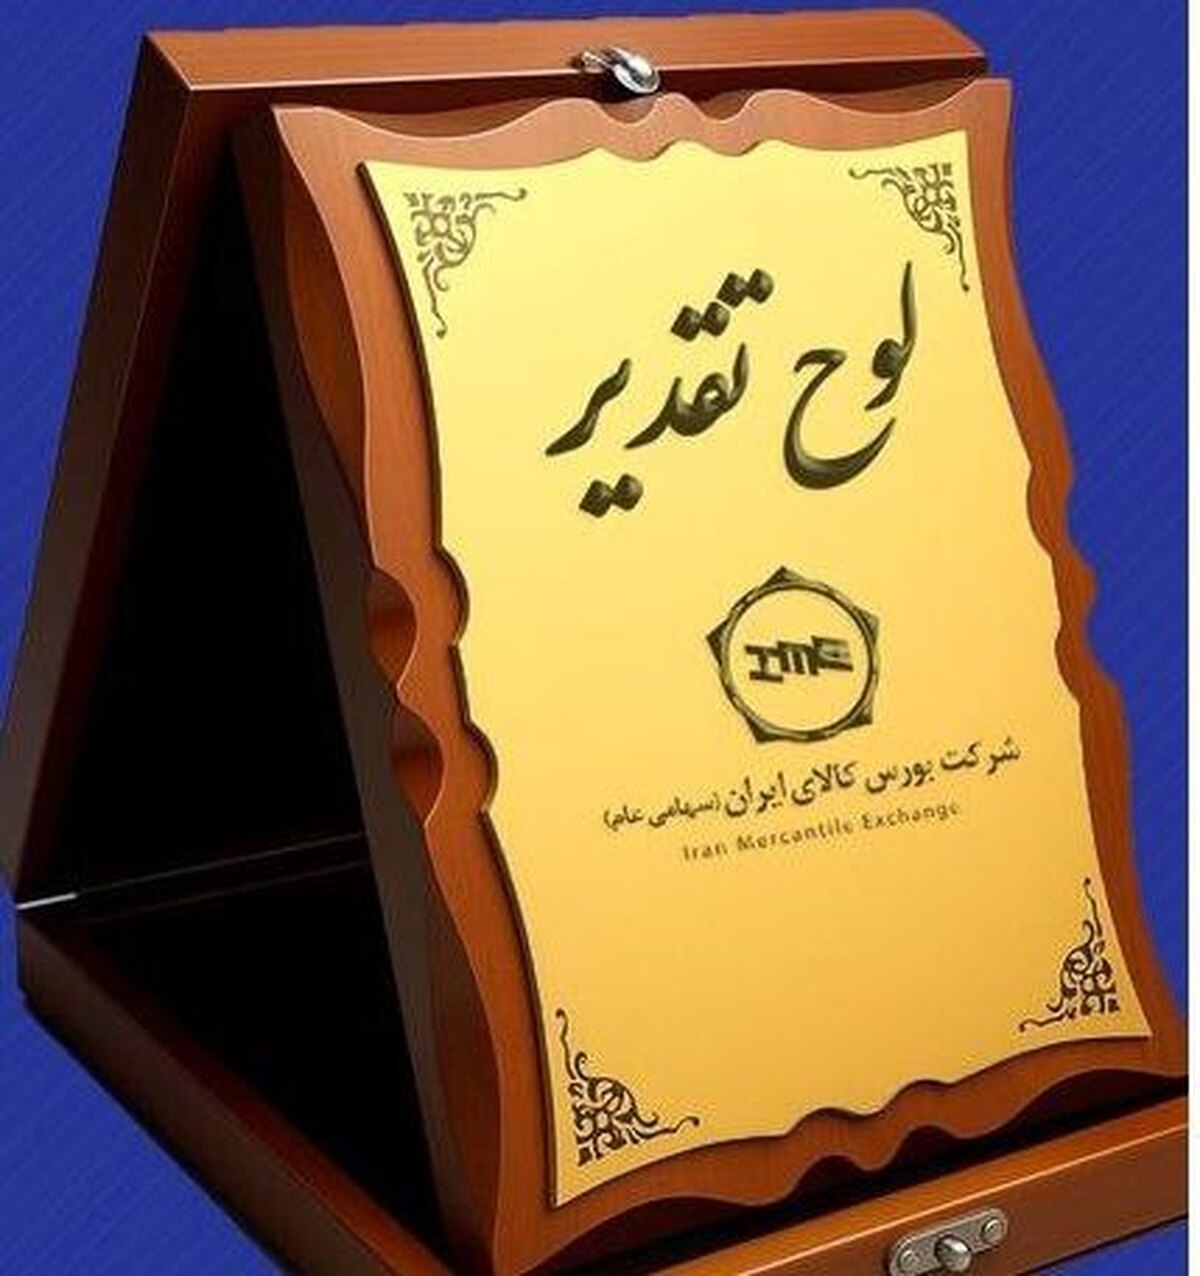 لوح تقدیر
شرکت بورس کالای ایران (سهامی عام)
Iran Mercantile Exchange